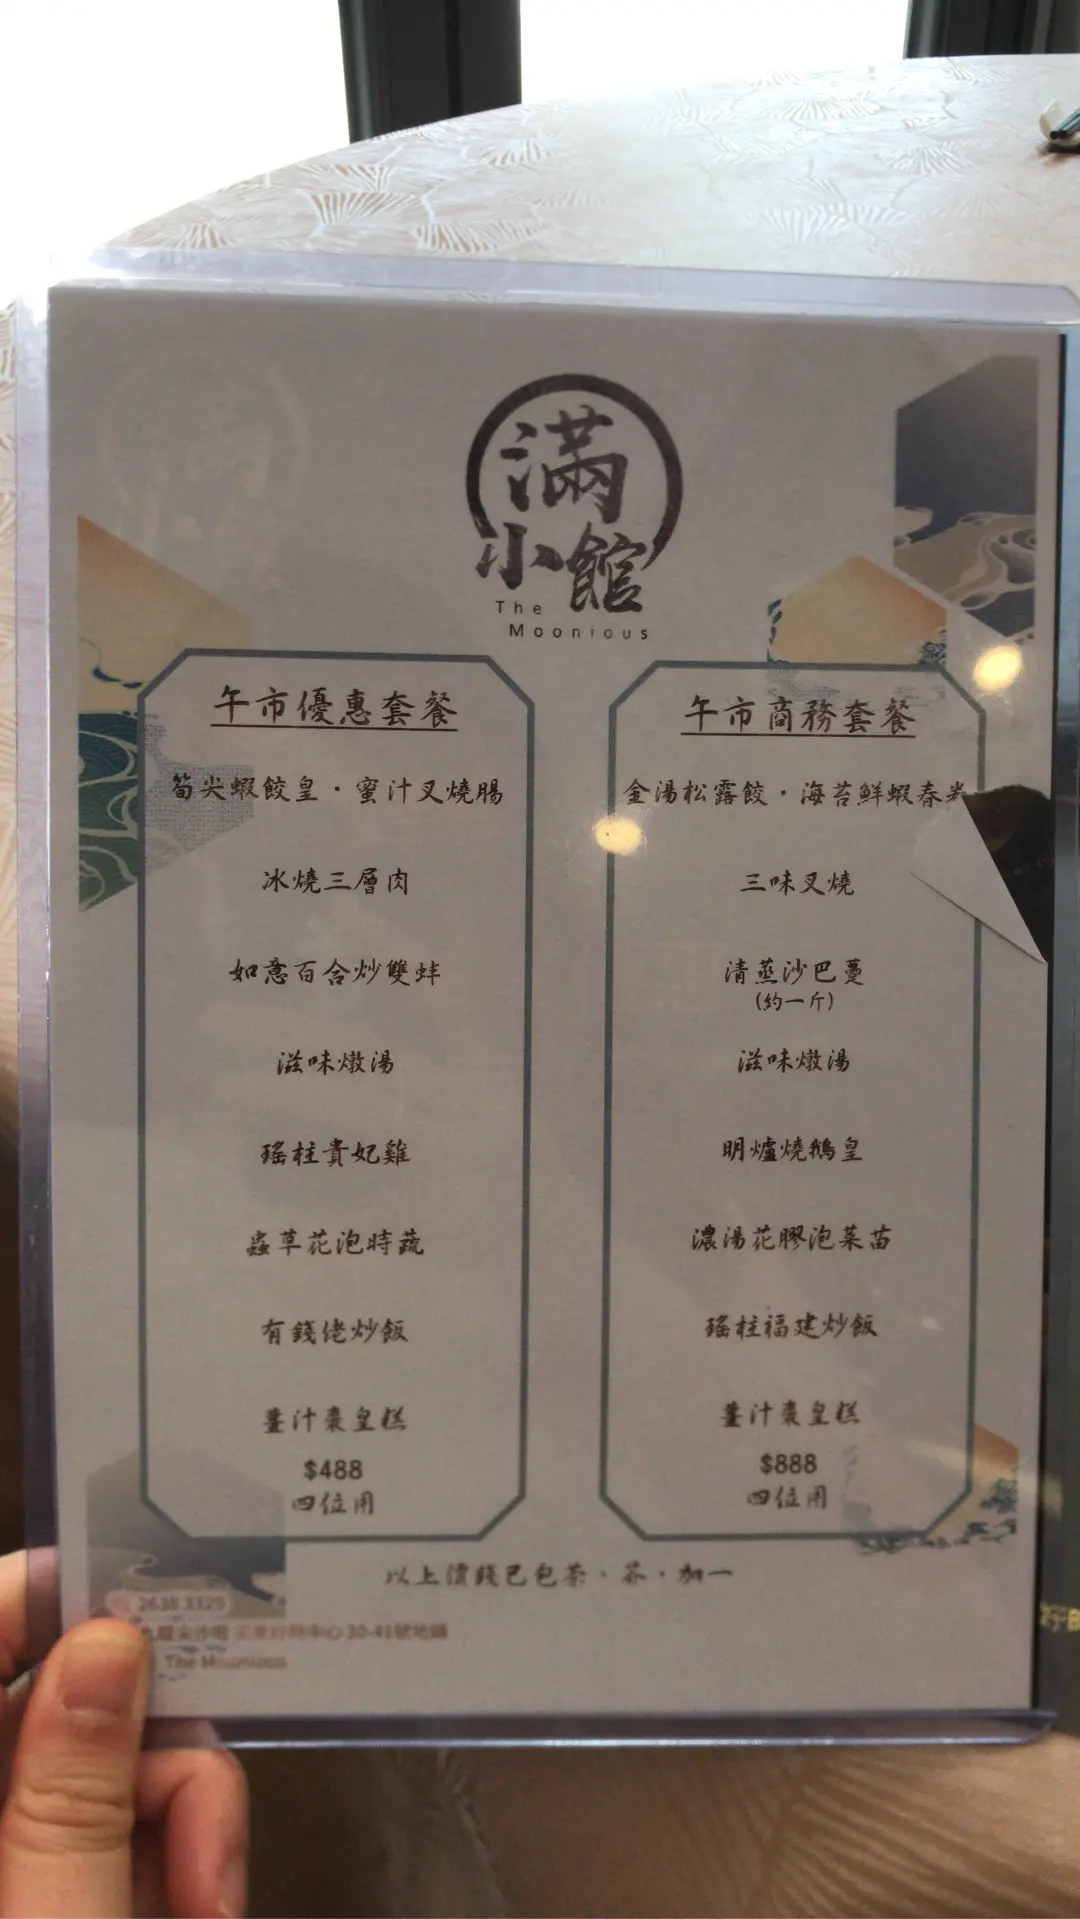 滿
小館
The
Moonious
午市優惠套餐
筍尖蝦餃皇·蜜汁叉燒腸
冰燒三層肉
如意百合炒雙蚌
滋味燉湯
瑤柱貴妃雞
蟲草花泡時蔬
有錢佬炒飯
薑汁棗皇糕
$488
四位用
午市商務套餐
金湯松露餃·海苔鮮蝦春
三味叉燒
清蒸沙巴躉
(約一斤)
滋味燉湯
明爐燒鵝皇
濃湯花膠泡菜苗
瑤柱福建炒飯
薑汁棗皇糕
$888
四位用
以上價錢已包茶·芥·加一
2638 3329
九龍尖沙咀 中心 30-41號地舖
The Moonious